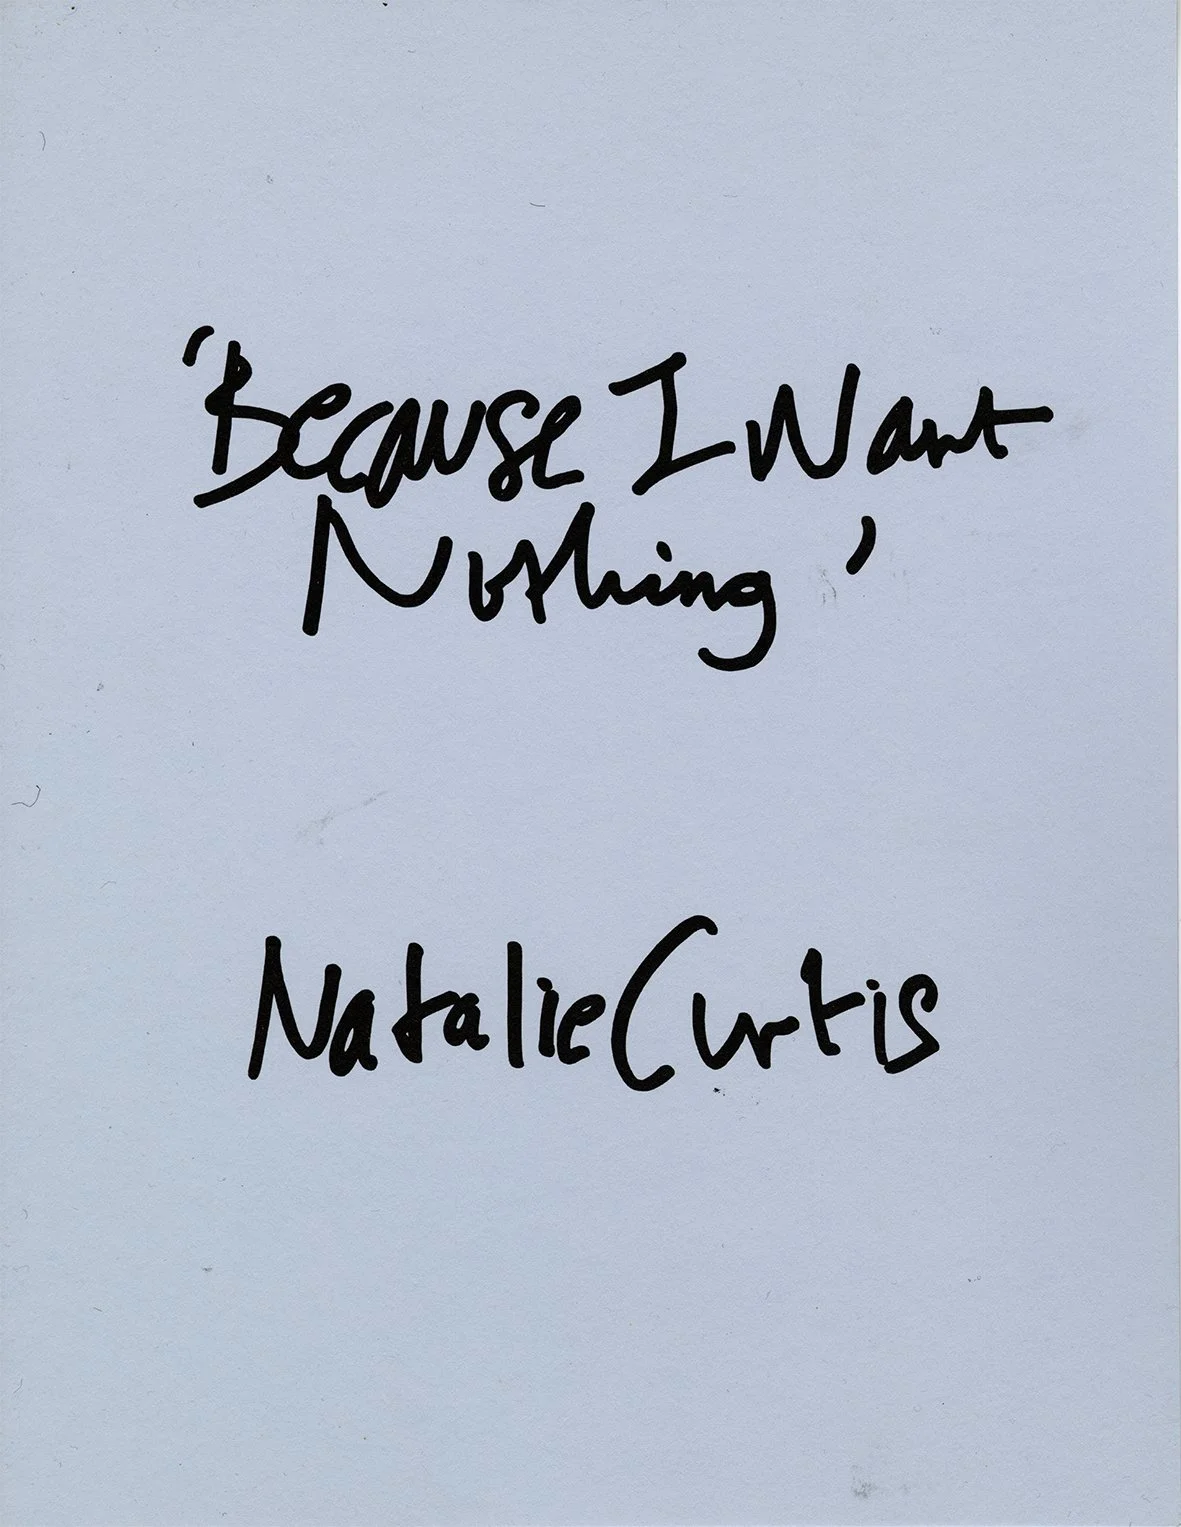 'Because I Want
Nothing'
Natalie Curtis